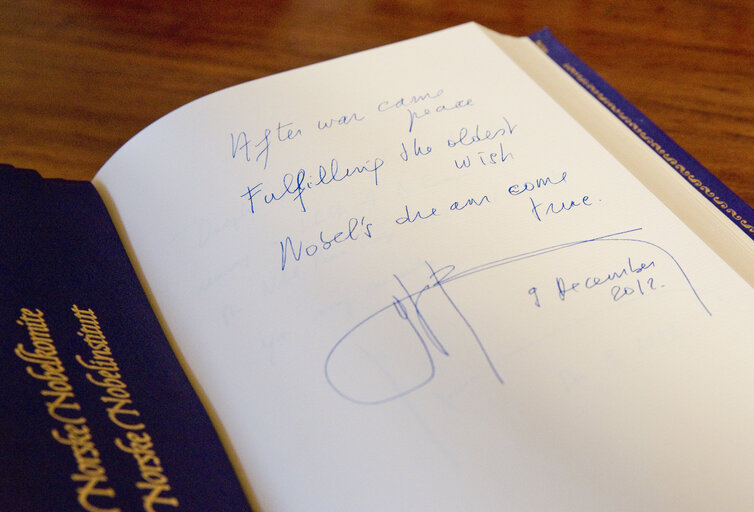 After war came
peace
Fulfilling the oldest
wish
Nobel's dream come
true.
9 December
2012.
Norske Nobelkomite
Norske Nobelinstitutt